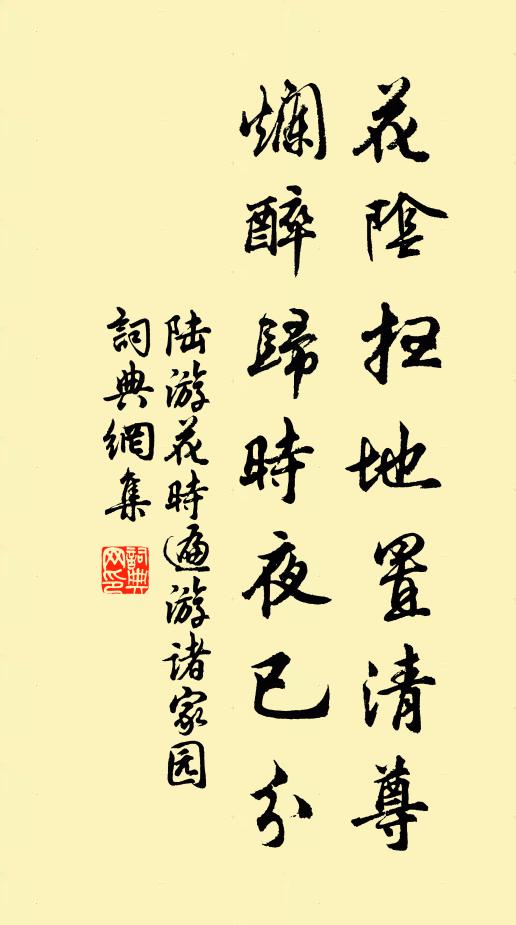 花陰扫地置清尊
爛醉歸時夜已分
陆游花時遍游诸家园
詞典網集
詞典网印